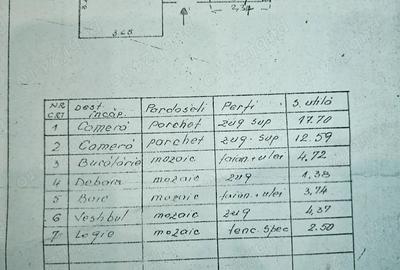 3.68
2,30
NR CRT Dest. încăp. Pardoseli Perți S. utilă
1 Cameră parchet zug sup 17.70
2 Cameră parchet zug. sup 12.59
3 Bucătărie mozaic faian + ulei 4,72
4 Debara mozaic zug 1,38
5 Baie mozaic faian + ulei 3,74
6 Vestibul mozaic zug 4,37
7 Logie mozaic tenc. spec 2.50